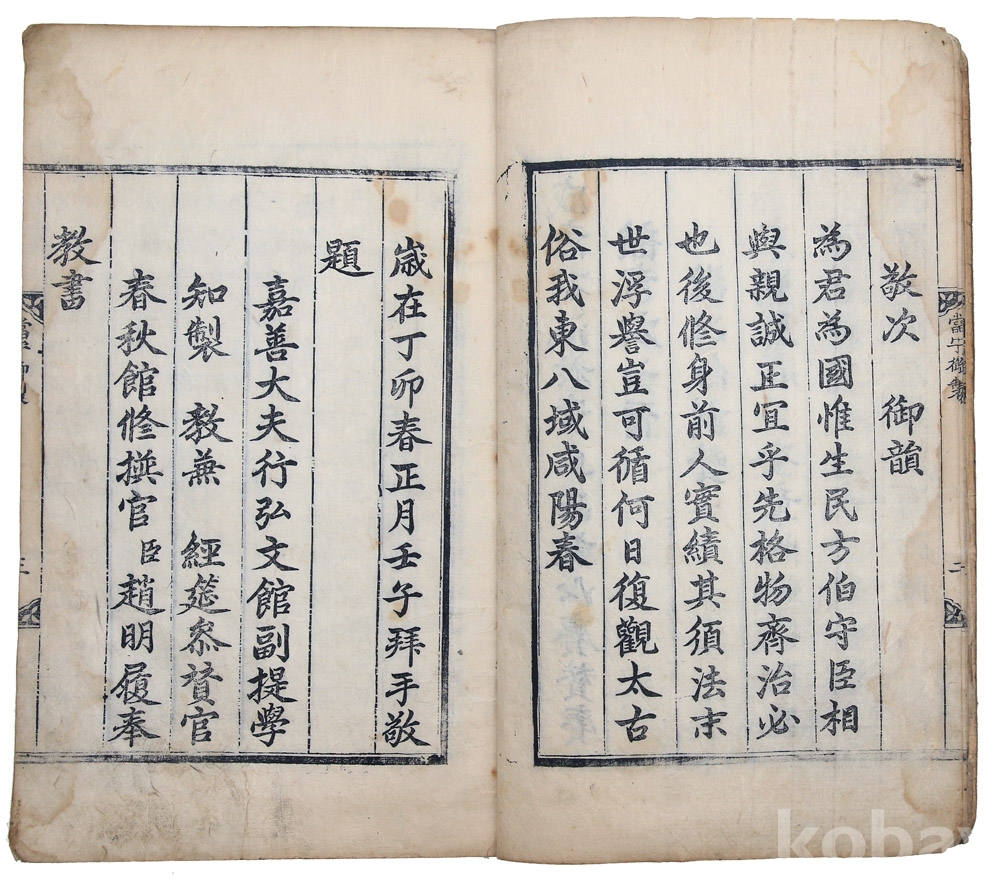 敬次 御韻
為君為國惟生民方伯守臣相
與親誠正冝乎先格物齊治必
也後修身前人實績其須法末
世浮譽豈可循何日復觀太古
俗我東八域咸陽春
二
歲在丁卯春正月壬午拜手敬
題
嘉善大夫行弘文館副提學
知製 敎兼 經筵叅賛官
春秋館修撰官臣趙明履奉
教書
三
koba